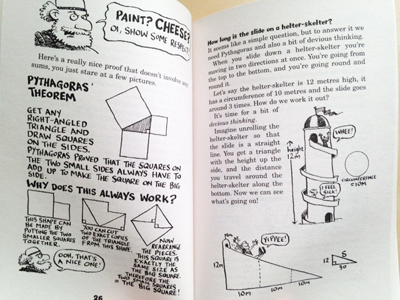 PAINT? CHEESE?
OI, SHOW SOME RESPECT!
Here's a really nice proof that doesn't involve any
sums, you just stare at a few pictures.
PYTHAGORAS'
THEOREM
GET ANY
RIGHT-ANGLED
TRIANGLE AND
DRAW SQUARES
ON THE SIDES.
PYTHAGORAS PROVED THAT THE SQUARES ON
THE TWO SMALL SIDES ALWAYS HAVE TO
ADD UP TO MAKE THE SQUARE ON THE BIG
SIDE.
WHY DOES THIS ALWAYS WORK?
THIS SHAPE CAN
BE MADE BY
PUTTING THE TWO
SMALLER SQUARES
TOGETHER.
YOU CAN CUT
TWO EXACT COPIES
OF THE TRIANGLE
FROM THIS SHAPE.
NOW
REARRANGE
THE PIECES.
THIS SQUARE IS
EXACTLY THE
SAME SIZE AS
THE BIG SQUARE.
THEREFORE THE
TWO SMALL SQUARES
= THE BIG SQUARE!
OOH, THAT'S
A NICE ONE!
26
How long is the slide on a helter-skelter?
It seems like a simple question, but to answer it we
need Pythagoras and also a bit of devious thinking.
When you slide down a helter-skelter you're
moving in two directions at once. You're going from
the top to the bottom, and you're going round and
round it.
Let's say the helter-skelter is 12 metres high, it
has a circumference of 10 metres and the slide goes
around 3 times. How do we work it out?
It's time for a bit of
devious thinking.
Imagine unrolling the
helter-skelter so that
the slide is a straight
line. You get a triangle
with the height up the
side, and the distance
you travel around the
helter-skelter along the
bottom. Now we can see
what's going on!
WHEE!
height
12m
I FEEL
SICK!
CIRCUMFERENCE
=10m
YIPPEE!
12m
10m
10m
10m
12
S
30